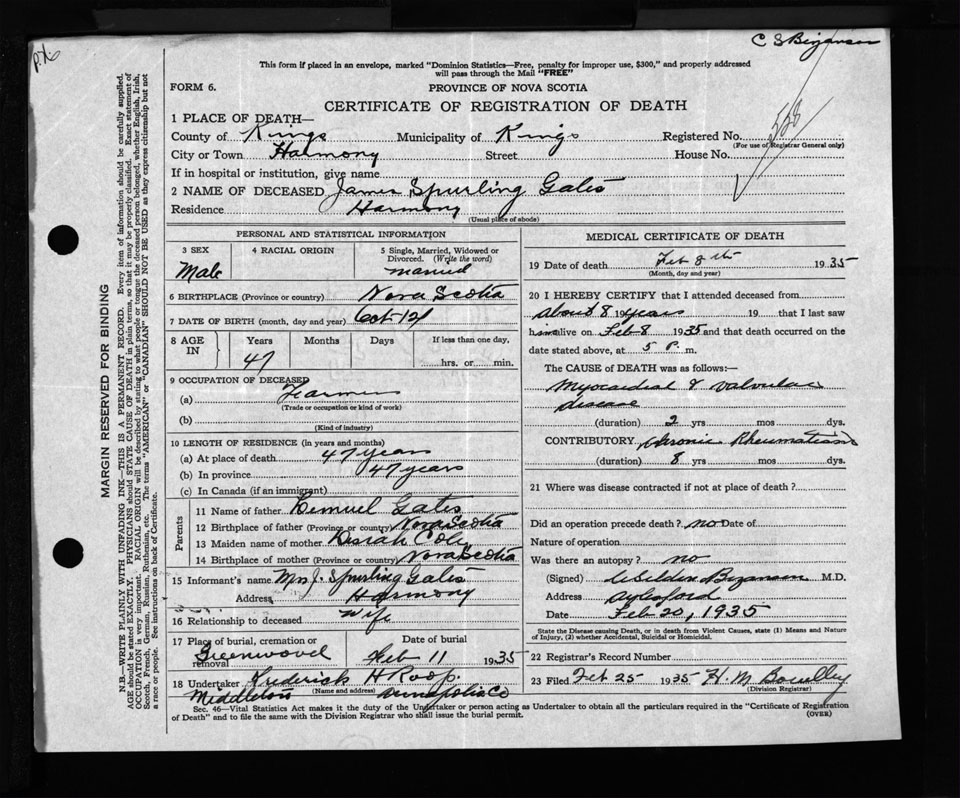 P.X.
C S Bezanson
This form if placed in an envelope, marked "Dominion Statistics—Free, penalty for improper use, $300," and properly addressed
will pass through the Mail "FREE"
FORM 6.
PROVINCE OF NOVA SCOTIA
CERTIFICATE OF REGISTRATION OF DEATH
1 PLACE OF DEATH—
County of Kings Municipality of Kings Registered No. 528
(For use of Registrar General only)
City or Town Harmony Street House No.
If in hospital or institution, give name
2 NAME OF DECEASED James Spurling Gates
Residence Harmony
(Usual place of abode)
PERSONAL AND STATISTICAL INFORMATION
3 SEX 4 RACIAL ORIGIN 5 Single, Married, Widowed or
Divorced. (Write the word)
Male married
6 BIRTHPLACE (Province or country) Nova Scotia
7 DATE OF BIRTH (month, day and year) Oct 12
8 AGE IN Years Months Days If less than one day,
47 hrs. or min.
9 OCCUPATION OF DECEASED
(a) Farmer
(Trade or occupation or kind of work)
(b)
(Kind of industry)
10 LENGTH OF RESIDENCE (in years and months)
(a) At place of death 47 years
(b) In province 47 years
(c) In Canada (if an immigrant)
Parents
11 Name of father Lemuel Gates
12 Birthplace of father (Province or country) Nova Scotia
13 Maiden name of mother Cole
14 Birthplace of mother (Province or country) Nova Scotia
15 Informant's name Mrs J. Spurling Gates
Address Harmony
16 Relationship to deceased wife
17 Place of burial, cremation or removal Date of burial
Greenwood Feb 11 1935
18 Undertaker Frederick H Roop.
(Name and address)
Middleton Annapolis Co
MEDICAL CERTIFICATE OF DEATH
19 Date of death Feb 8 th 1935
(Month, day and year)
20 I HEREBY CERTIFY that I attended deceased from
about 8 19 years 19 that I last saw
him alive on Feb 8 1935 and that death occurred on
date stated above, at 5 P. m.
The CAUSE OF DEATH was as follows:—
Myocardial & valvular
disease
(duration) 2 yrs mos dys.
CONTRIBUTORY Chronic Rheumatism
(duration) 8 yrs mos dys.
21 Where was disease contracted if not at place of death?
Did an operation precede death? no Date of
Nature of operation
Was there an autopsy? no
(Signed) Bezanson M.D.
Address Aylesford
Date Feb 20, 1935
State the Disease causing Death, or in death from Violent Causes, state (1) Means and Nature
of Injury, (2) whether Accidental, Suicidal or Homicidal.
22 Registrar's Record Number
23 Filed Feb 25 1935 H. M.
(Division Registrar)
Sec. 46—Vital Statistics Act makes it the duty of the Undertaker or person acting as Undertaker to obtain all the particulars required in the "Certificate of Registration
of Death" and to file the same with the Division Registrar who shall issue the burial permit. (OVER)
MARGIN RESERVED FOR BINDING
N.B.—WRITE PLAINLY WITH UNFADING INK—THIS IS A PERMANENT RECORD. Every item of information should be carefully supplied.
AGE should be stated EXACTLY. PHYSICIANS should STATE CAUSE OF DEATH in plain terms, so that it may be properly classified. Exact statement of
OCCUPATION is very important. RACIAL ORIGIN will be described by stating to what people or tongue the deceased person belonged, whether English, Irish,
Scotch, French, German, Russian, Ruthenian, etc. The terms "AMERICAN" or "CANADIAN" SHOULD NOT BE USED as they express citizenship but not
a race or people. See instructions on back of Certificate.